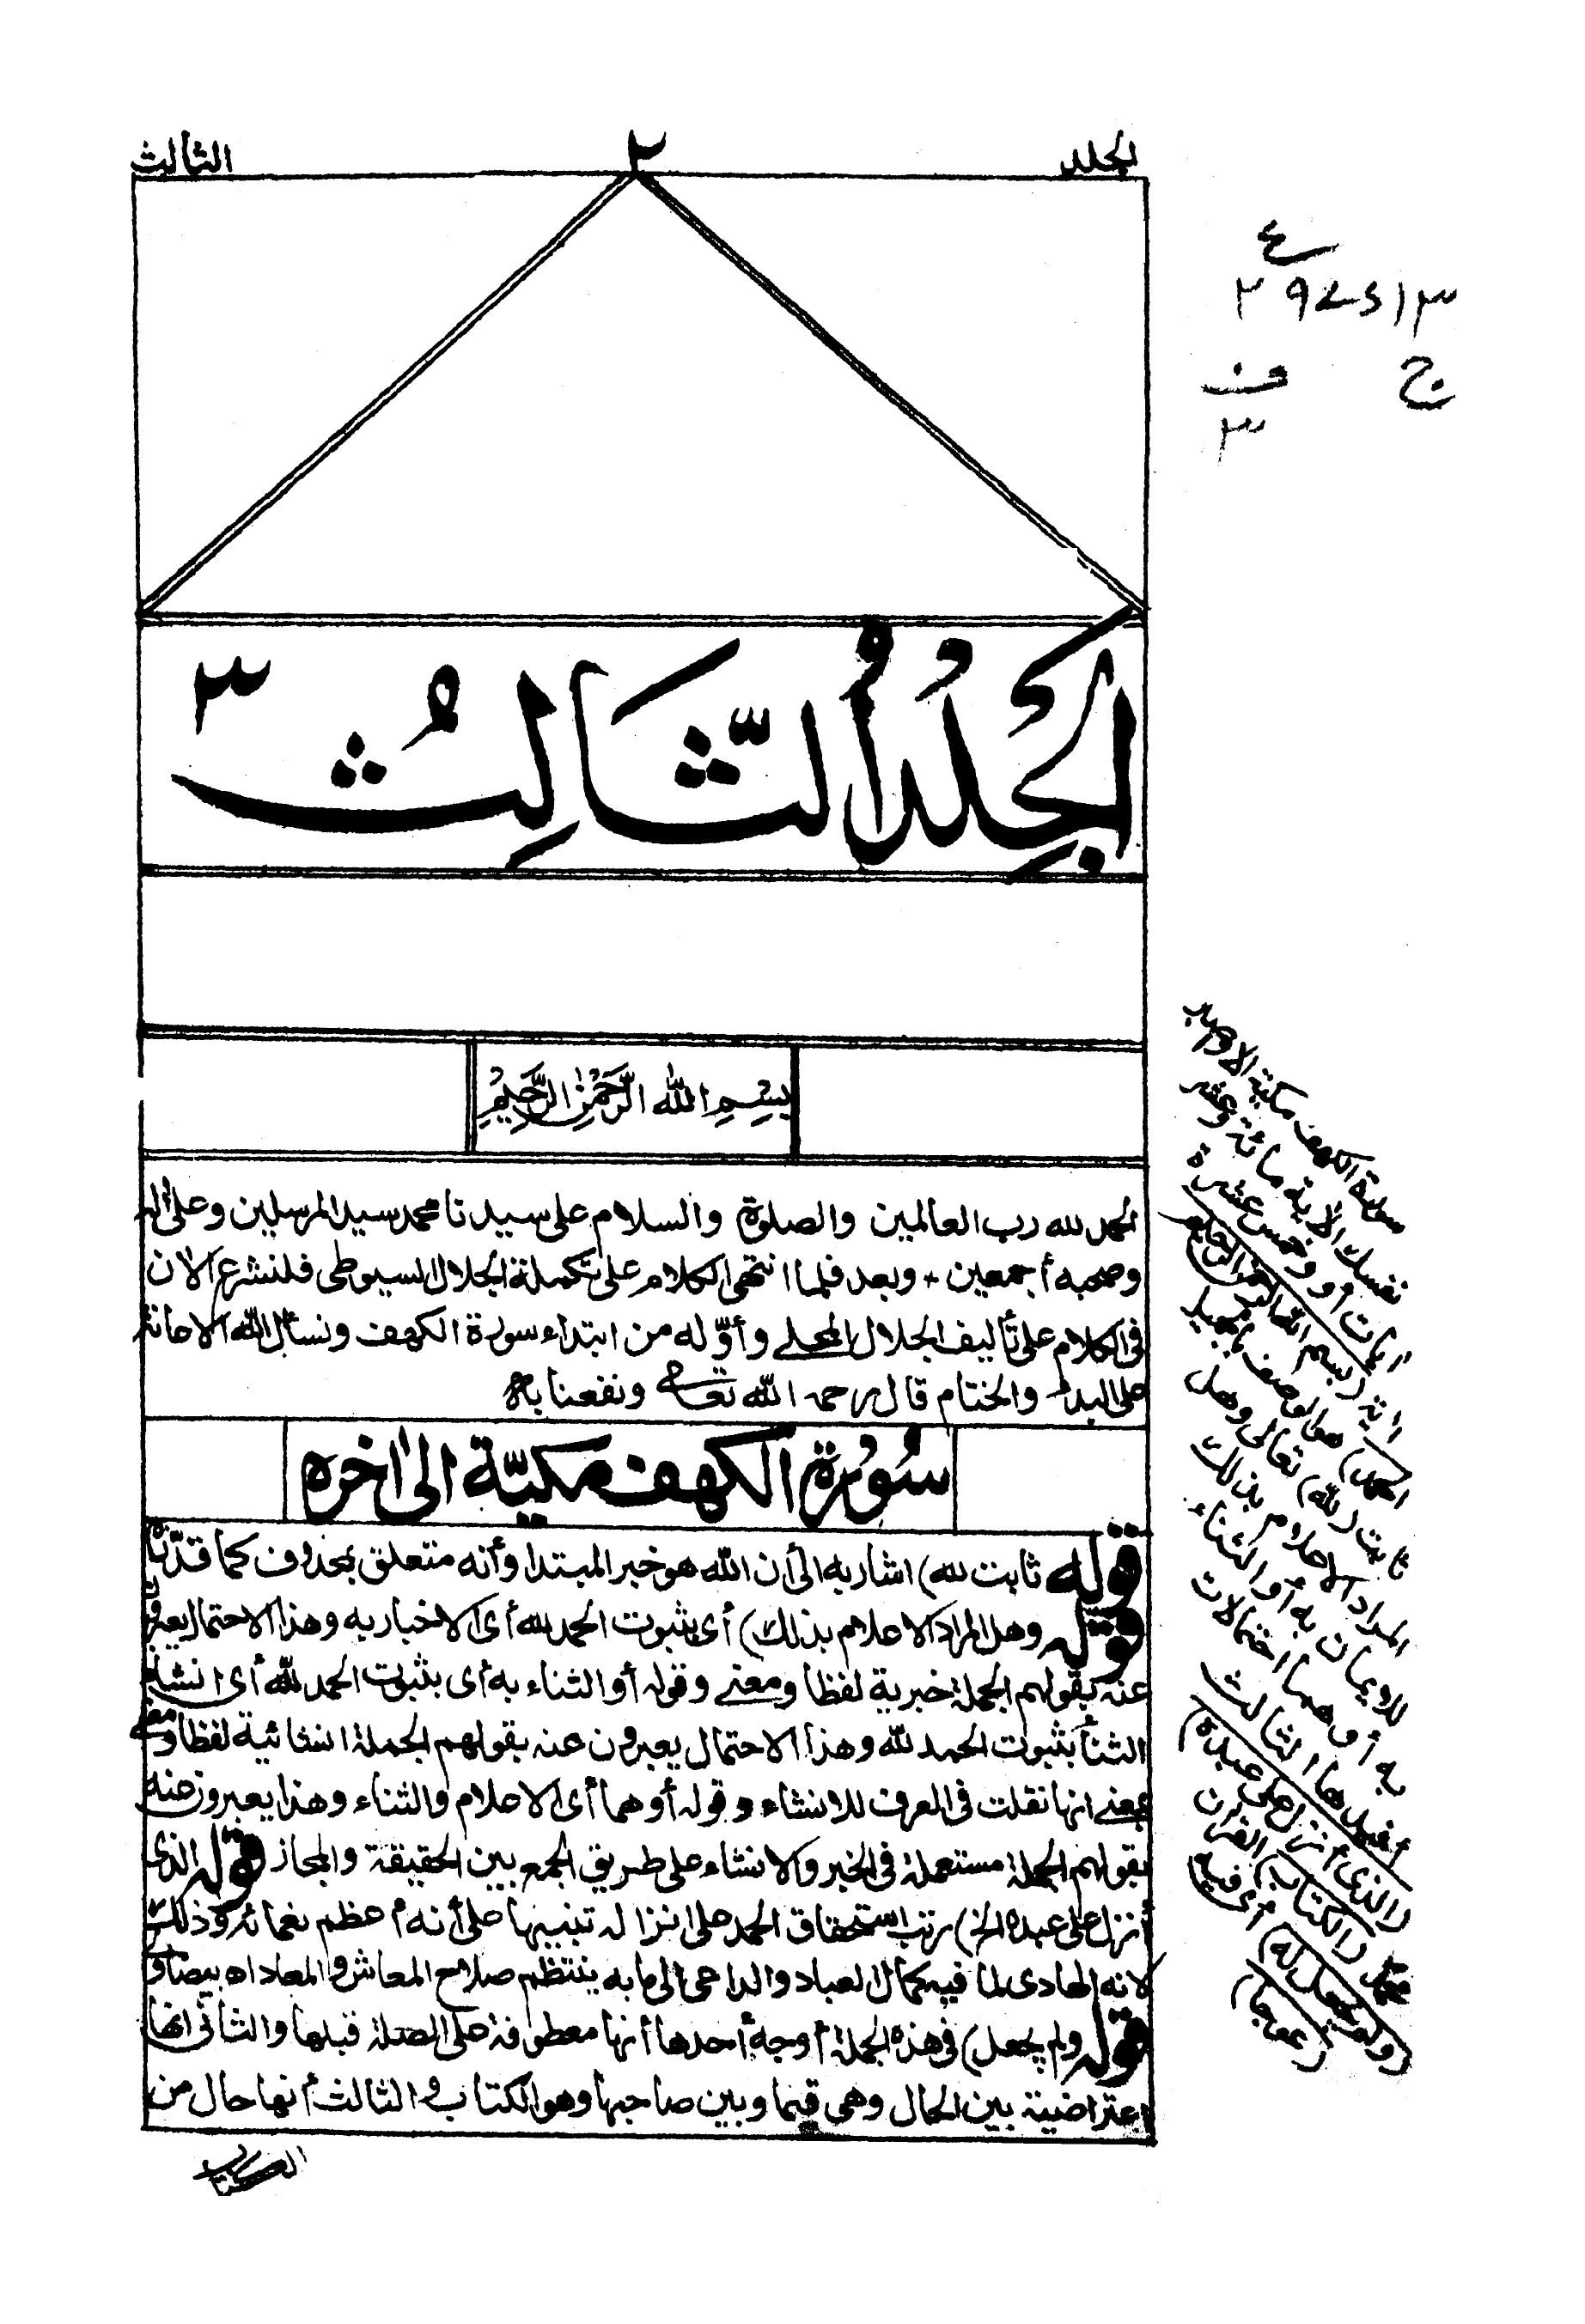 المجلد
٢
الثالث
المجلد الثالث ٣
بسم الله الرحمن الرحيم
الحمد لله رب العالمين والصلوة والسلام على سيدنا محمد سيد المرسلين وعلى اله
وصحبه أجمعين + وبعد فلما انتهى الكلام على تكملة الجلال السيوطى فلنشرع الآن
فى الكلام على تأليف الجلال المحلے وأوّله من ابتداء سورة الكهف ونسأل الله الاعانة
على البدء والختام قال رحمه الله تعالى ونفعنا به
سُوْرة الكهف مكيّة الى اخره
قوله ثابت لله) اشار به الى أن الله هو خبر المبتدا وأنه متعلق بمحذوف كما قدّره
قوله وهل المراد الاعلام بذلك) أى بثبوت الحمد لله أى الاخبار به وهذا الاحتمال يعبرون
عنه بقولهم الجملة خبرية لفظا ومعنے وقوله أو الثناء به أى بثبوت الحمد لله أى انشاء
الثناء بثبوت الحمد لله وهذا الاحتمال يعبرون عنه بقولهم الجملة انشائية لفظا ومعنے
بمعنے انها نقلت فى العرف للانشاء وقوله أو هما أى الاعلام والثناء وهذا يعبرون عنه
بقولهم الجملة مستعملة فى الخبر والانشاء على طريق الجمع بين الحقيقة والمجاز قوله الذى
أنزل على عبده الخ) رتب استحقاق الحمد على انزاله تنبيها على أنه أعظم نعمائه وذلك
لانه الهادى لما فيه كمال العباد والداعى الى ما به ينتظم صلاح المعاش والمعاد اه بيضاوى
قوله ولم يجعل) فى هذه الجملة أوجه أحدها أنها معطوفة على الصلة قبلها والثانى انها
اعتراضية بين الحال وهى قيما وبين صاحبها وهو الكتاب والثالث أنها حال من
الكتاب
سورة الكهف مكية الا واصبر
نفسك الآية مائة وعشر
آيات أو وخمس عشرة
اية (بسم الله الرحمن الرحيم
الحمد) هو الوصف بالجميل
ثابت (لله) تعالى وهل
المراد الاعلام بذلك
للايمان به أو الثناء
به أو هما احتمالات
أفيدها الثالث
(الذى أنزل على عبده)
محمد (الكتاب) القرآن
(ولم يجعل له) أى فيه
(عوجا)